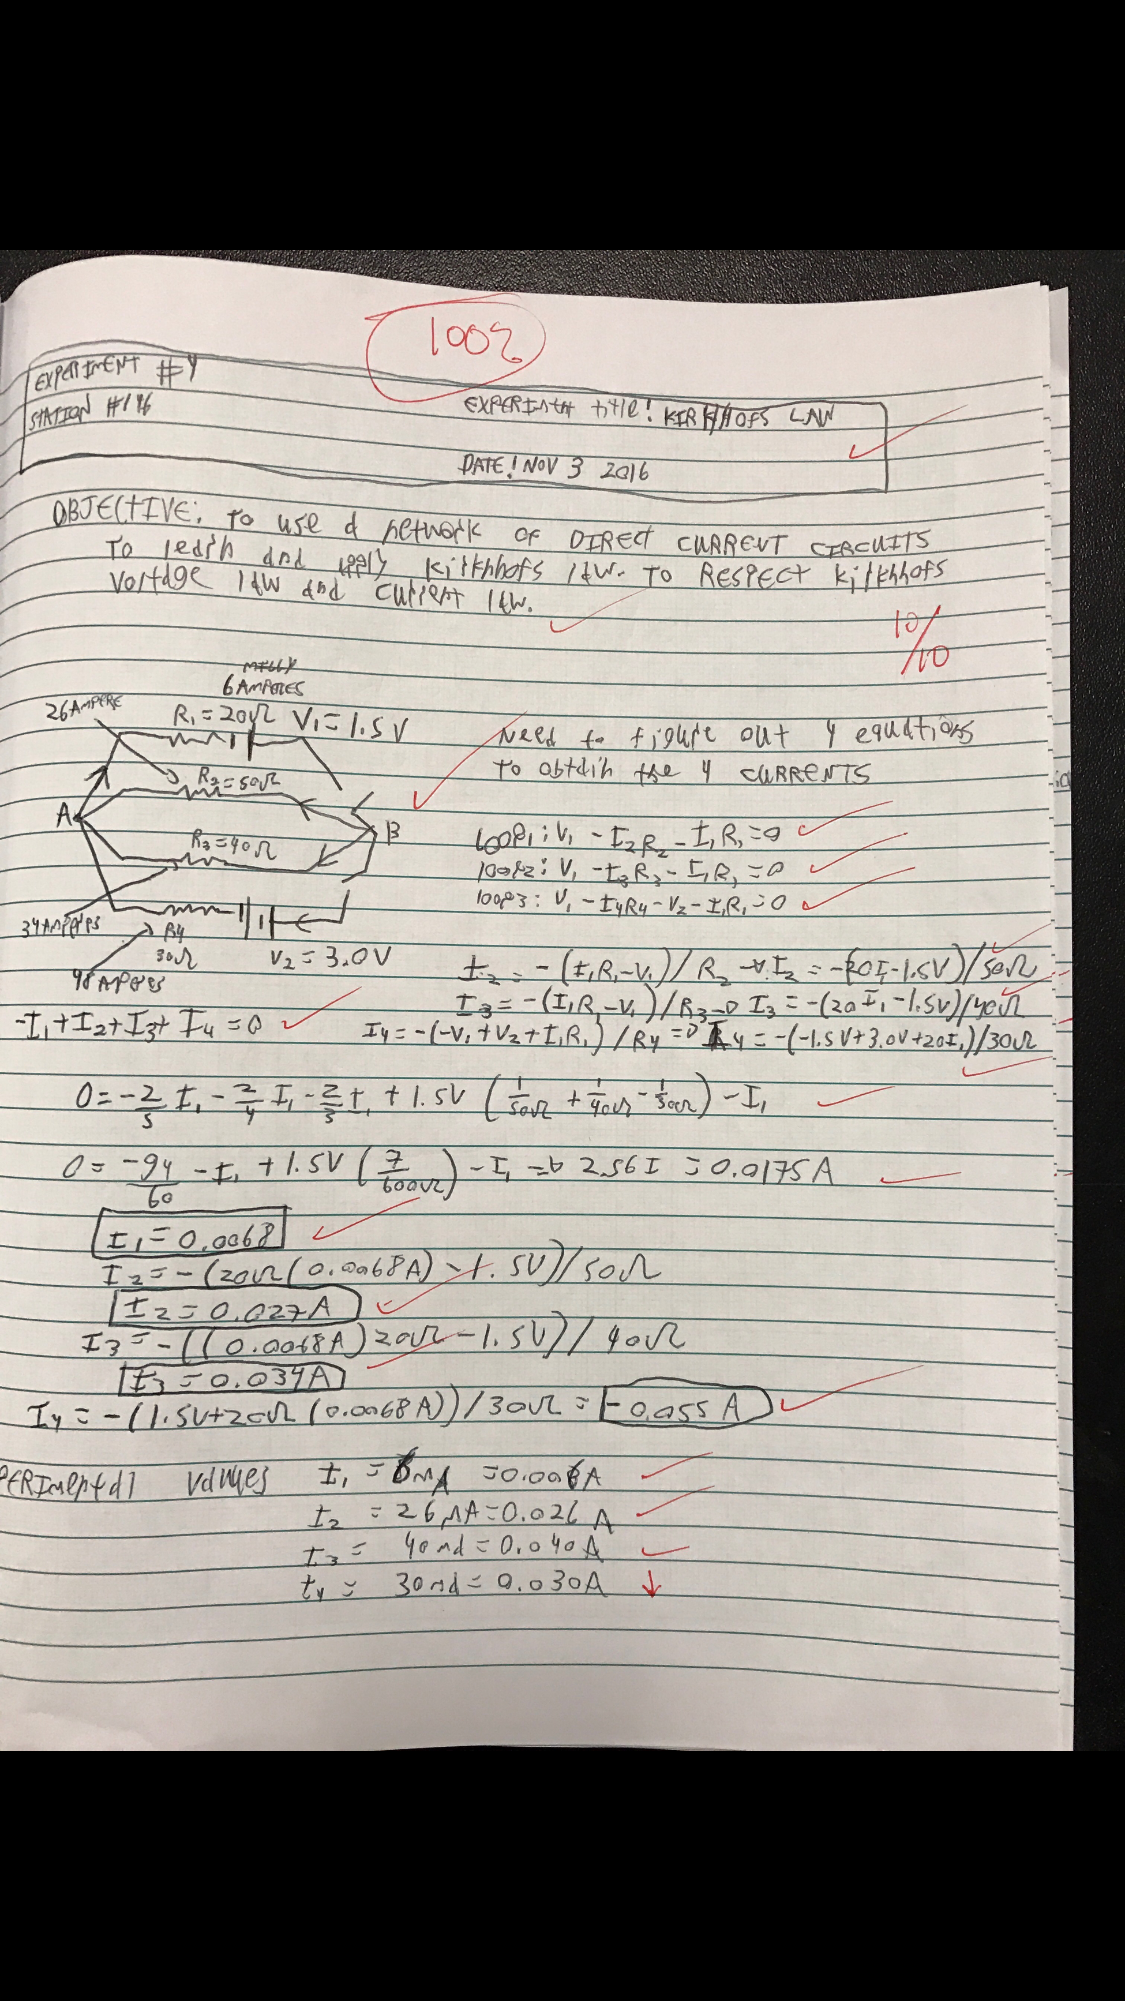 100%
EXPERIMENT #4
STATION #146
EXPERIMENT title: KIRKHHOFS LAW
DATE: NOV 3 2016
OBJECTIVE: To use a network OF DIRECT CURRENT CIRCUITS
To learn and apply Kirkhhofs law. TO RESPECT Kirkhhofs
Voltage law and current law.
10/10
6 AMPERES
26 AMPERE
R₁ = 20Ω V₁ = 1.5 V
R₂ = 50Ω
A
B
R₃ = 40Ω
34 AMPERES
R4
30Ω
V₂ = 3.0V
48 AMPERES
Need to figure out 4 equations
To obtain the 4 CURRENTS
LOOP1: V₁ - I₂R₂ - I₁R₁ = 0
LOOP2: V₁ - I₃R₃ - I₁R₁ = 0
LOOP3: V₁ - I4R4 - V₂ - I₁R₁ = 0
I₂ = -(I₁R₁-V₁)/R₂ → I₂ = -(20I₁-1.5V)/50Ω
I₃ = -(I₁R₁-V₁)/R₃ → I₃ = -(20I₁-1.5V)/40Ω
-I₁+I₂+I₃+I₄ = 0
I4 = -(-V₁+V₂+I₁R₁)/R4 => I4 = -(-1.5V+3.0V+20I₁)/30Ω
0 = -2/5 I₁ - 2/4 I₁ - 2/3 I₁ + 1.5V (1/50Ω + 1/40Ω - 1/30Ω) - I₁
0 = -94/60 - I₁ + 1.5V (7/600Ω) - I₁ => 2.56I = 0.0175A
I₁ = 0.0068
I₂ = -(20Ω(0.0068A) - 1.5V)/50Ω
I₂ = 0.027A
I₃ = -((0.0068A)20Ω - 1.5V)/40Ω
I₃ = 0.034A
I4 = -(1.5V+20Ω(0.0068A))/30Ω = -0.055 A
PERImental values I₁ = 6mA = 0.006A
I₂ = 26mA = 0.026 A
I₃ = 40mA = 0.040A
I4 = 30mA = 0.030A